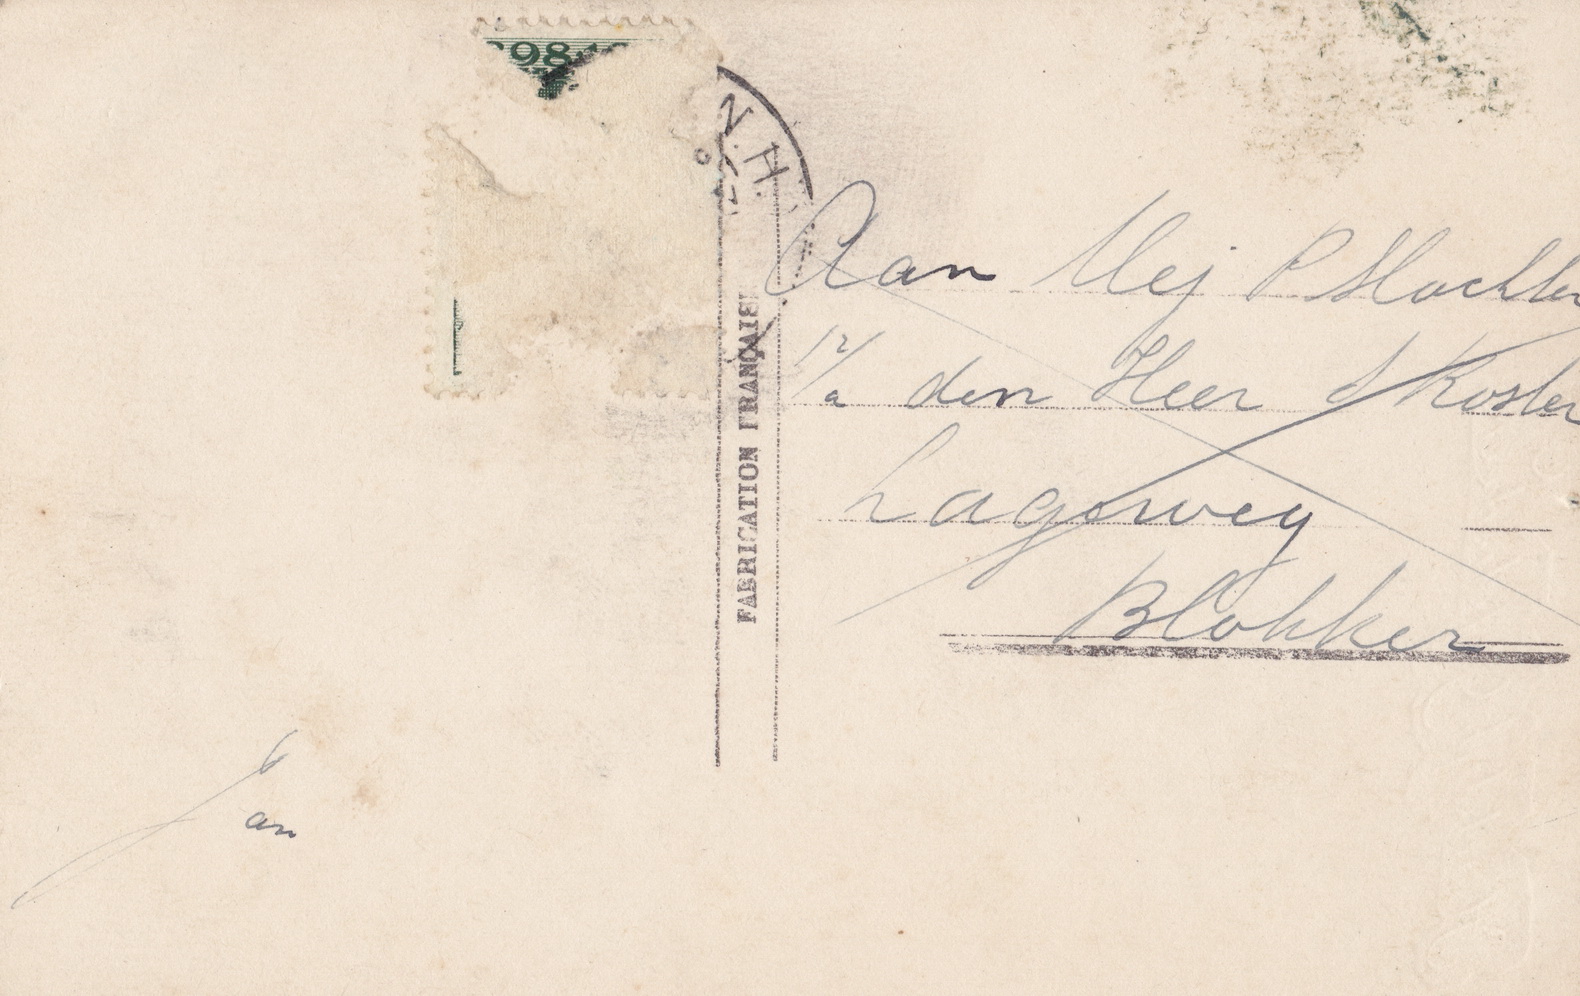 98
N.H.
FABRICATION FRANÇAISE
Aan Mej P Slachter
p/a den Heer J Koster
Lageweg
Blokker
Jan